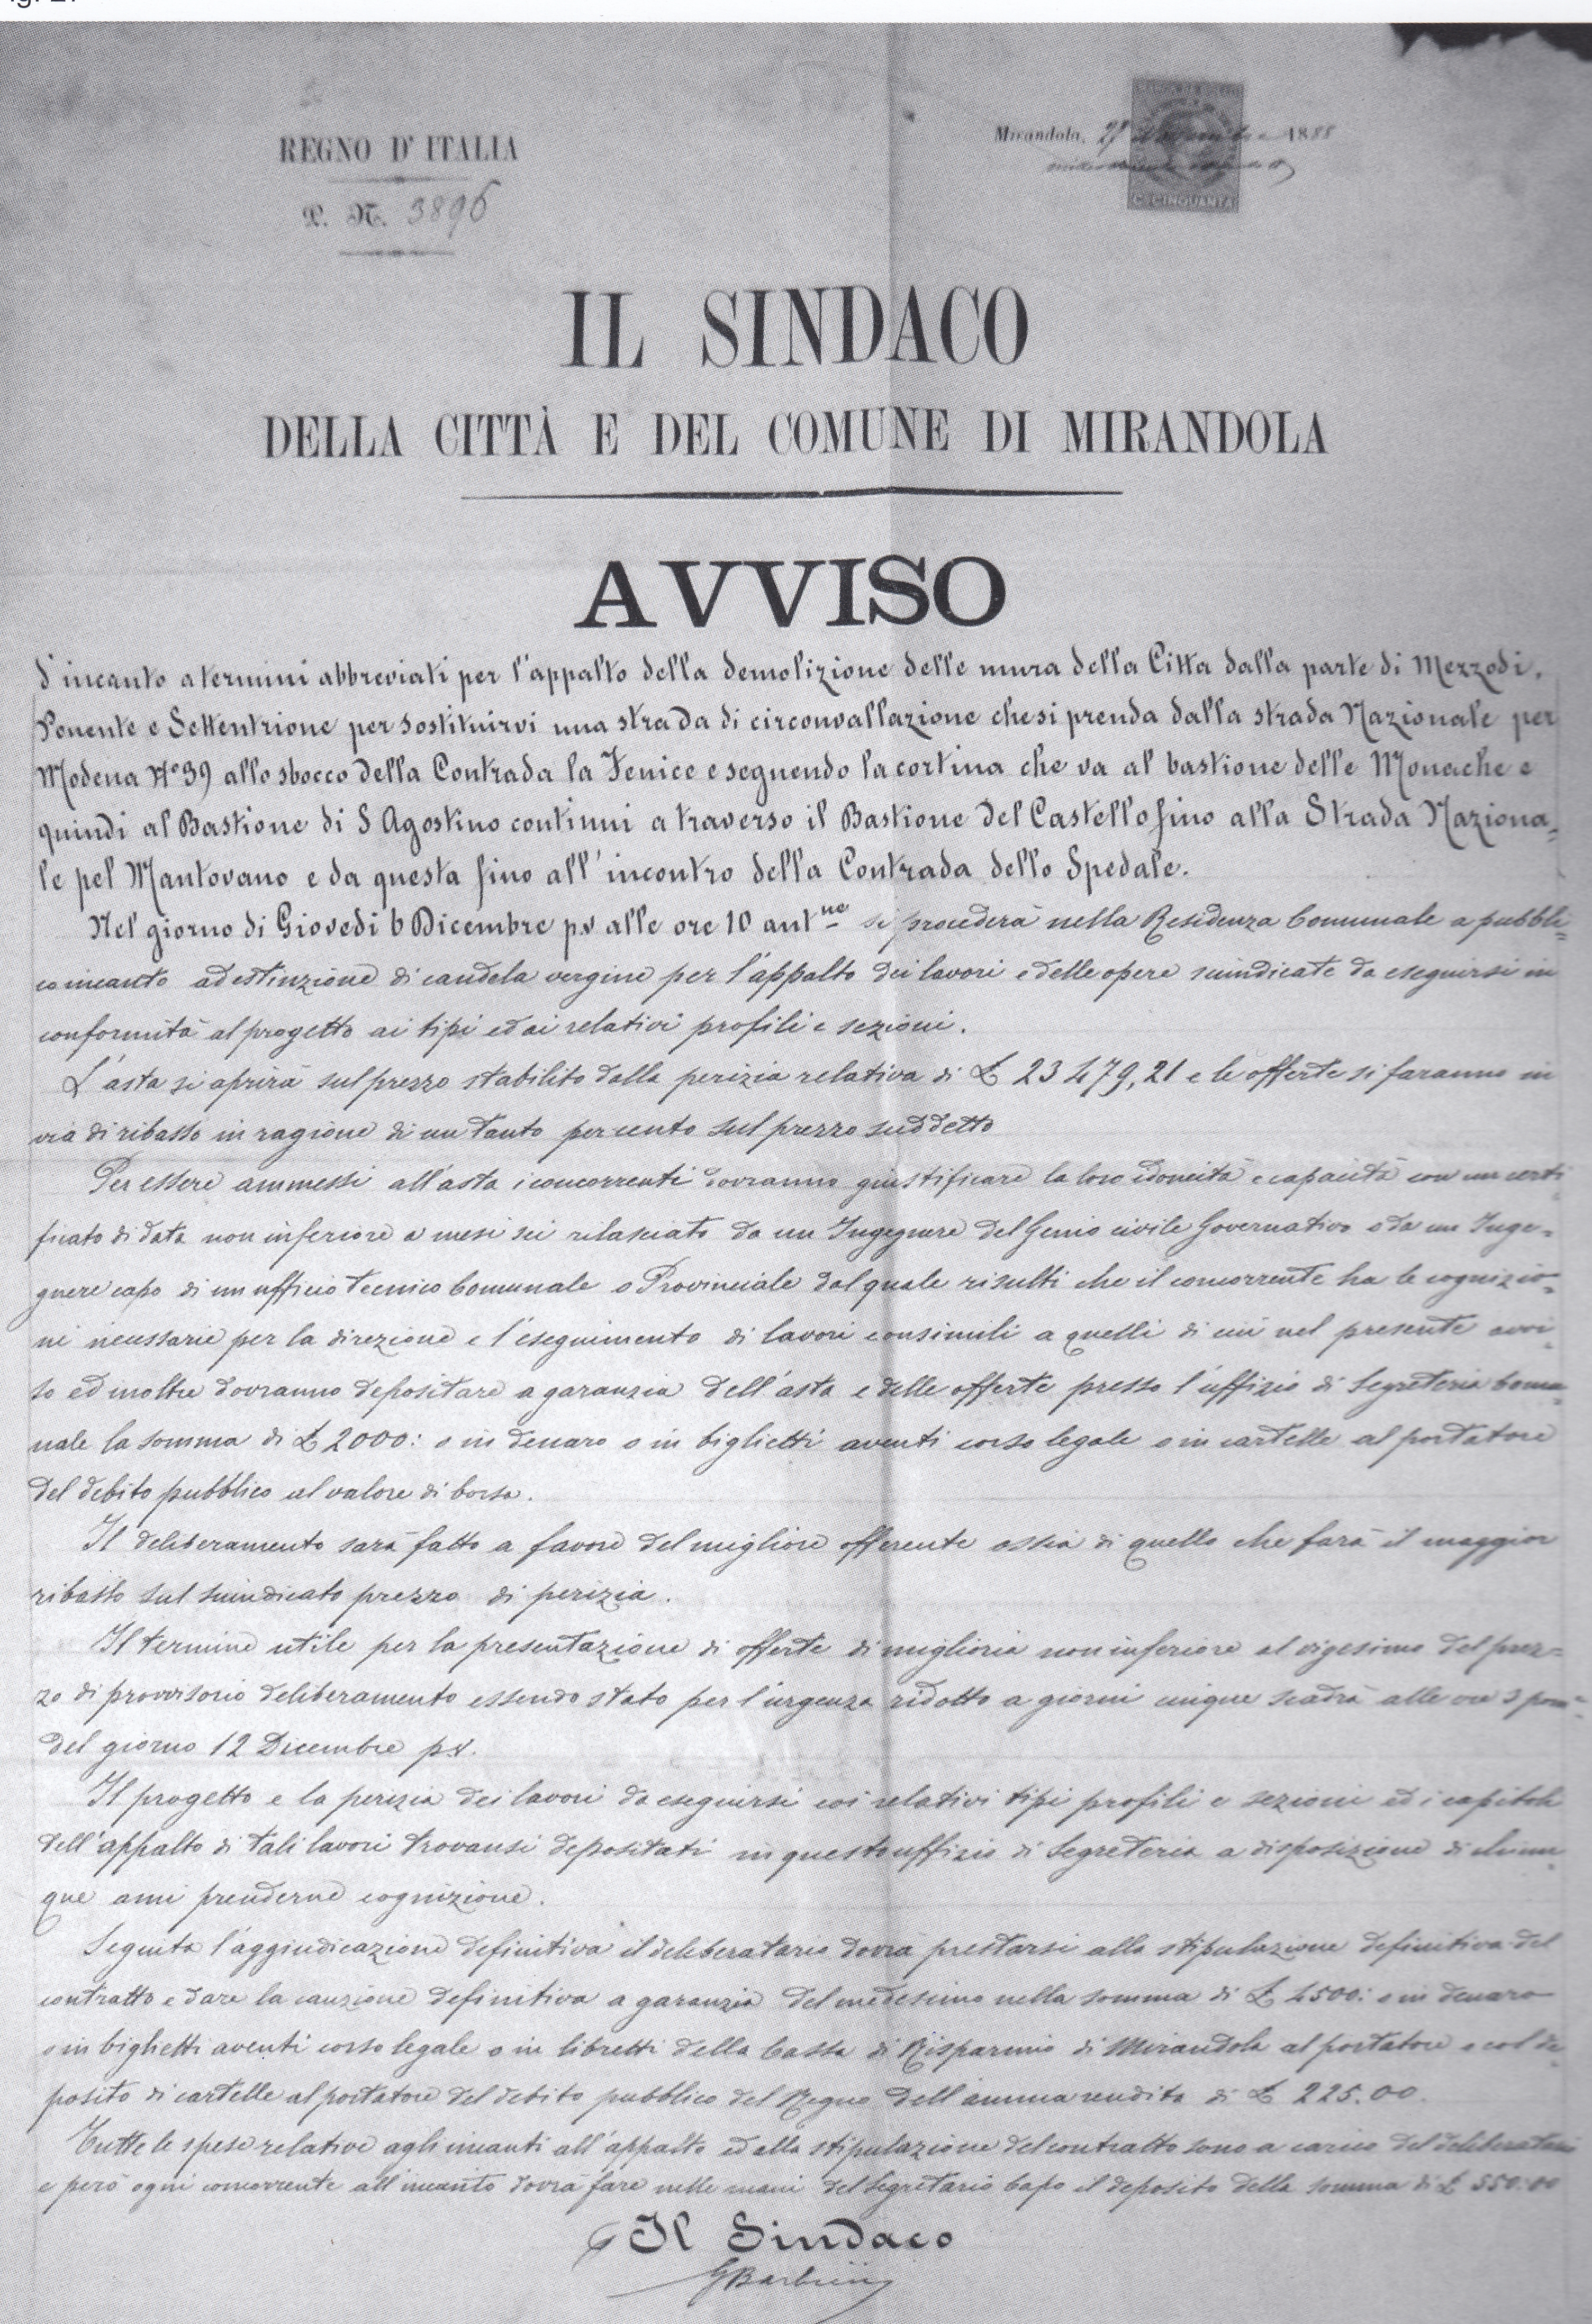 REGNO D' ITALIA
P. N. 3896
Mirandola, 27 Novembre 1888
MARCA DA BOLLO
C. CINQUANTA
IL SINDACO
DELLA CITTÀ E DEL COMUNE DI MIRANDOLA
AVVISO
d'incanto a termini abbreviati per l'appalto della demolizione delle mura della Citta dalla parte di Mezzodi,
Ponente e Settentrione per sostituirvi una strada di circonvallazione che si prenda dalla strada Nazionale per
Modena N.o 39 allo sbocco della Contrada la Fenice e seguendo la cortina che va al bastione delle Monache e
quindi al Bastione di S Agostino continui a traverso il Bastione del Castello fino alla Strada Naziona=
le pel Mantovano e da questa fino all'incontro della Contrada dello Spedale.
Nel giorno di Giovedi 6 Dicembre p.v alle ore 10 ant.ne si procederà nella Residenza Comunale a pubbli=
co incanto ad estinzione di candela vergine per l'appalto dei lavori e delle opere suindicate da eseguirsi in
conformità al progetto ai tipi ed ai relativi profili e sezioni.
L'asta si aprirà sul prezzo stabilito dalla perizia relativa di £ 23479,21 e le offerte si faranno in
via di ribasso in ragione di un tanto per cento sul prezzo suddetto
Per essere ammessi all'asta i concorrenti dovranno giustificare la loro idoneità e capacità con un certi
ficato di data non inferiore a mesi sei rilasciato da un Ingegnere del Genio civile Governativo o da un Inge=
gnere capo di un ufficio tecnico Comunale o Provinciale dal quale risulti che il concorrente ha le cognizio=
ni necessarie per la direzione e l'eseguimento di lavori consimili a quelli di cui nel presente avvi=
so ed inoltre dovranno depositare a garanzia dell'asta e delle offerte presso l'uffizio di Segreteria Comu=
nale la somma di £ 2000: o in denaro o in biglietti aventi corso legale o in cartelle al portatore
del debito pubblico al valore di borsa.
Il deliberamento sarà fatto a favore del migliore offerente ossia di quello che farà il maggior
ribasso sul suindicato prezzo di perizia.
Il termine utile per la presentazione di offerte di miglioria non inferiore al vigesimo del prez=
zo di provvisorio deliberamento essendo stato per l'urgenza ridotto a giorni cinque scadrà alle ore 3 pom.
del giorno 12 Dicembre p.v.
Il progetto e la perizia dei lavori da eseguirsi coi relativi tipi profili e sezioni ed i capitoli
dell'appalto di tali lavori trovansi depositati in questo uffizio di Segreteria a disposizione di chiun=
que ami prenderne cognizione.
Seguita l'aggiudicazione definitiva il deliberatario dovrà prestarsi alla stipulazione definitiva del
contratto e dare la cauzione definitiva a garanzia del medesimo nella somma di £ 4500: o in denaro
o in biglietti aventi corso legale o in libretti della Cassa di Risparmio di Mirandola al portatore o col de=
posito di cartelle al portatore del debito pubblico del Regno dell'annua rendita di £ 225.00.
Tutte le spese relative agli incanti all'appalto ed alla stipulazione del contratto sono a carico del deliberatario
e però ogni concorrente all'incanto dovrà fare nelle mani del Segretario Capo il deposito della somma di £ 550:00
Il Sindaco